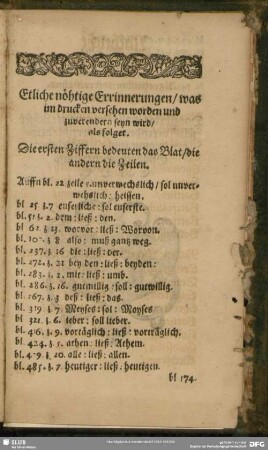 Etliche nöhtige Errinnerungen / was
im drucken versehen worden und
zuverendern seyn wird /
als folget.
Die ersten Ziffern bedeuten das Blat / die
andern die Zeilen.
Auffn bl. 22 zeile unverwechslich / sol unver-
wechslich: heissen.
bl 25 z. 7 euserste: sol
bl. 51 z. 2. dem: ließ: den.
bl 62 z. 13. wovor: ließ: Worvon.
bl. z. 8 also: muß gantz weg.
bl. 237. z. 16 die: ließ: der.
bl. 272. z. 21 bey den: ließ: beyden:
bl. 283. z. 2. mit: ließ: umb.
bl. 286. z. 16. gutmillig: soll: gutwillig.
bl. 267. z. 3 deß: ließ: das.
bl. 319 z. 7 Meyses: sol: Moyses
bl 321. z. 6. ieber: soll lieber.
bl. 416. z. 9. vorträglich: ließ: vorträglich.
bl. 424. z. 5. athen: ließ: Athem.
bl. 429 z. 20. alle: ließ: allen.
bl. 485. z. 7. heutiger: ließ: heutigen.
bl 174.
SLUB
DFG